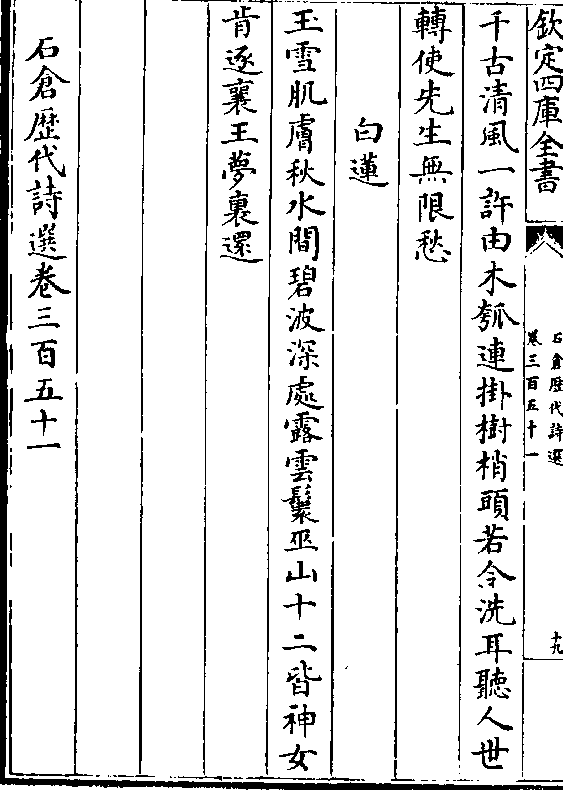 欽定四庫全書
石倉歷代詩選
卷三百五十一
十九
千古清風一許由木瓠連掛樹梢頭若令洗耳聽人世
轉使先生無限愁
白蓮
玉雪肌膚秋水間碧波深處露雲鬟巫山十二皆神女
肯逐襄王夢裏還
石倉歷代詩選卷三百五十一